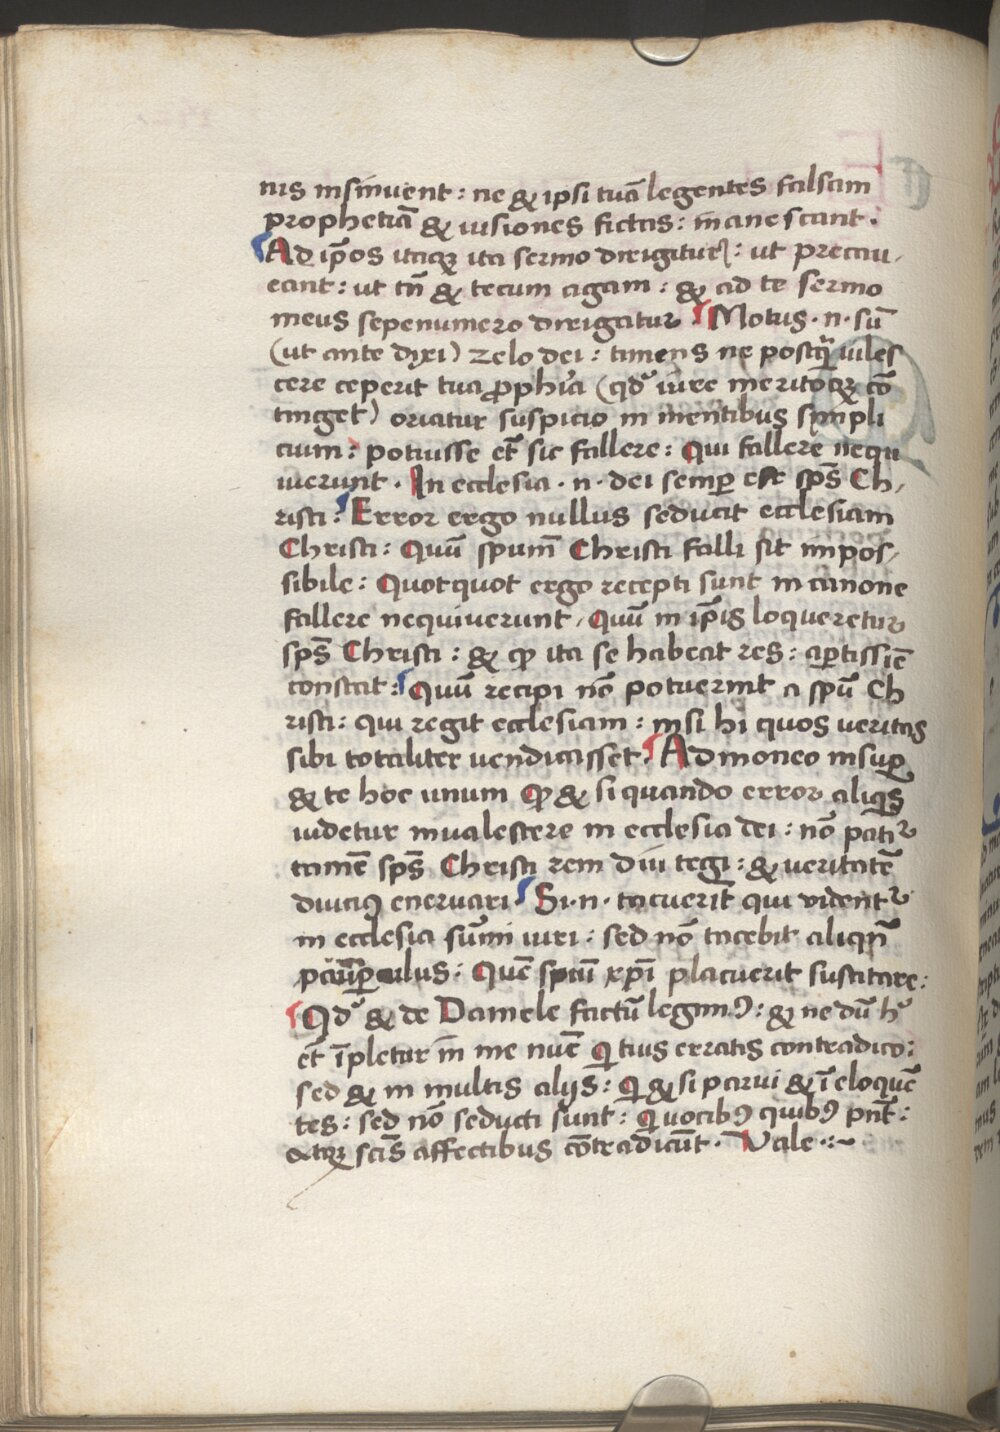 nis insinuent : ne & ipsi tuā legentes falsam
prophetiā & uisiones fictas : inanescant .
Ad ip̄os itaqꝫ ita sermo dirigitur : ut precau-
eant : ut tn̄ & tecum agam : & ad te sermo
meus sepenumero dirigatur Motus . n . sū
(ut ante dixi) zelo dei : timens ne postq̄ uiles
cere ceperit tua ꝓphīa (qd' iure meritoqꝫ cō
tinget) oriatur suspicio in mentibus simpli
cium : potuisse et̄ sic fallere : Qui fallere nequi
uerunt . In ecclesia . n . dei semꝑ est sp̄s Ch-
risti : Error ergo nullus seducit ecclesiam
Christi : Quū spum̄ Christi falli sit impos-
sibile : Quotquot ergo recepti sunt in canone
fallere nequiuerunt , Quū in ip̄is loqueretur
sp̄s Christi : & ꝙ ita se habeat res : aꝑtissīe
constat : Quū recipi nō potuerint a spū Ch
risti : qui regit ecclesiam : nisi hi quos ueritas
sibi totaliter uendicasset . Admoneo insuꝑ
& te hoc unum ꝙ & si quando error aliqis
uidetur inualescere in ecclesia dei : nō patiꝛ
tamē sp̄s Christi rem diu tegi : & ueritatē
diuciꝰ eneruari Si . n . tacuerīt qui uidentꝛ
in ecclesia sum̄i uiri : sed nō tacebit aliqn̄
pauꝑculus : Quē spum xp̄i placuerit suscitare :
Qd' & de Daniele factū legimꝰ : & ne dū h'
et̄ īpletur in me nūc qi tuis erratis contradico :
sed & in multis alijs : Qi & si parui & īeloquē
tes : sed nō seducti sunt : Qi uocibꝰ quibꝰ pn̄t :
atqꝫ scīs affectibus cōtradicūt . Vale .:~